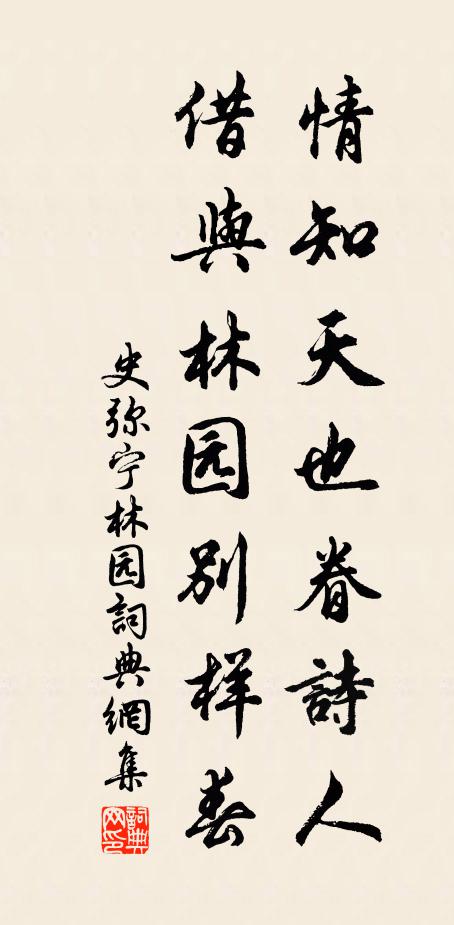 情知天也眷詩人
借與林园别样春
史弥宁林园詞典網集
詞典网印